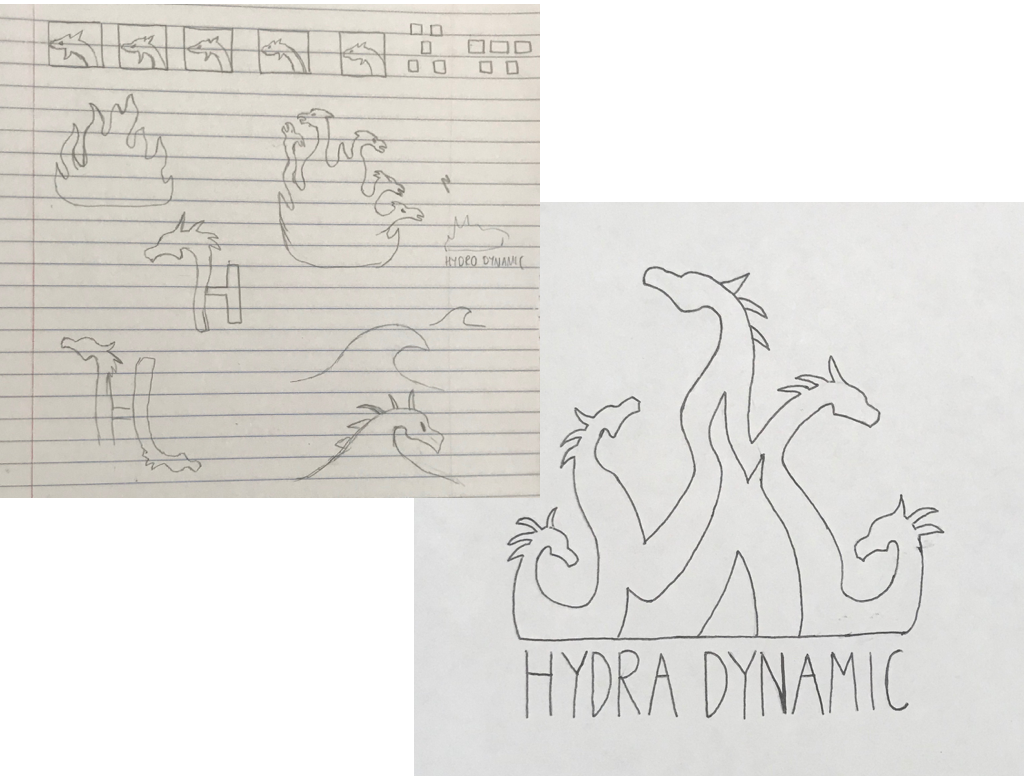 HYDRO DYNAMIC
H
H
HYDRA DYNAMIC